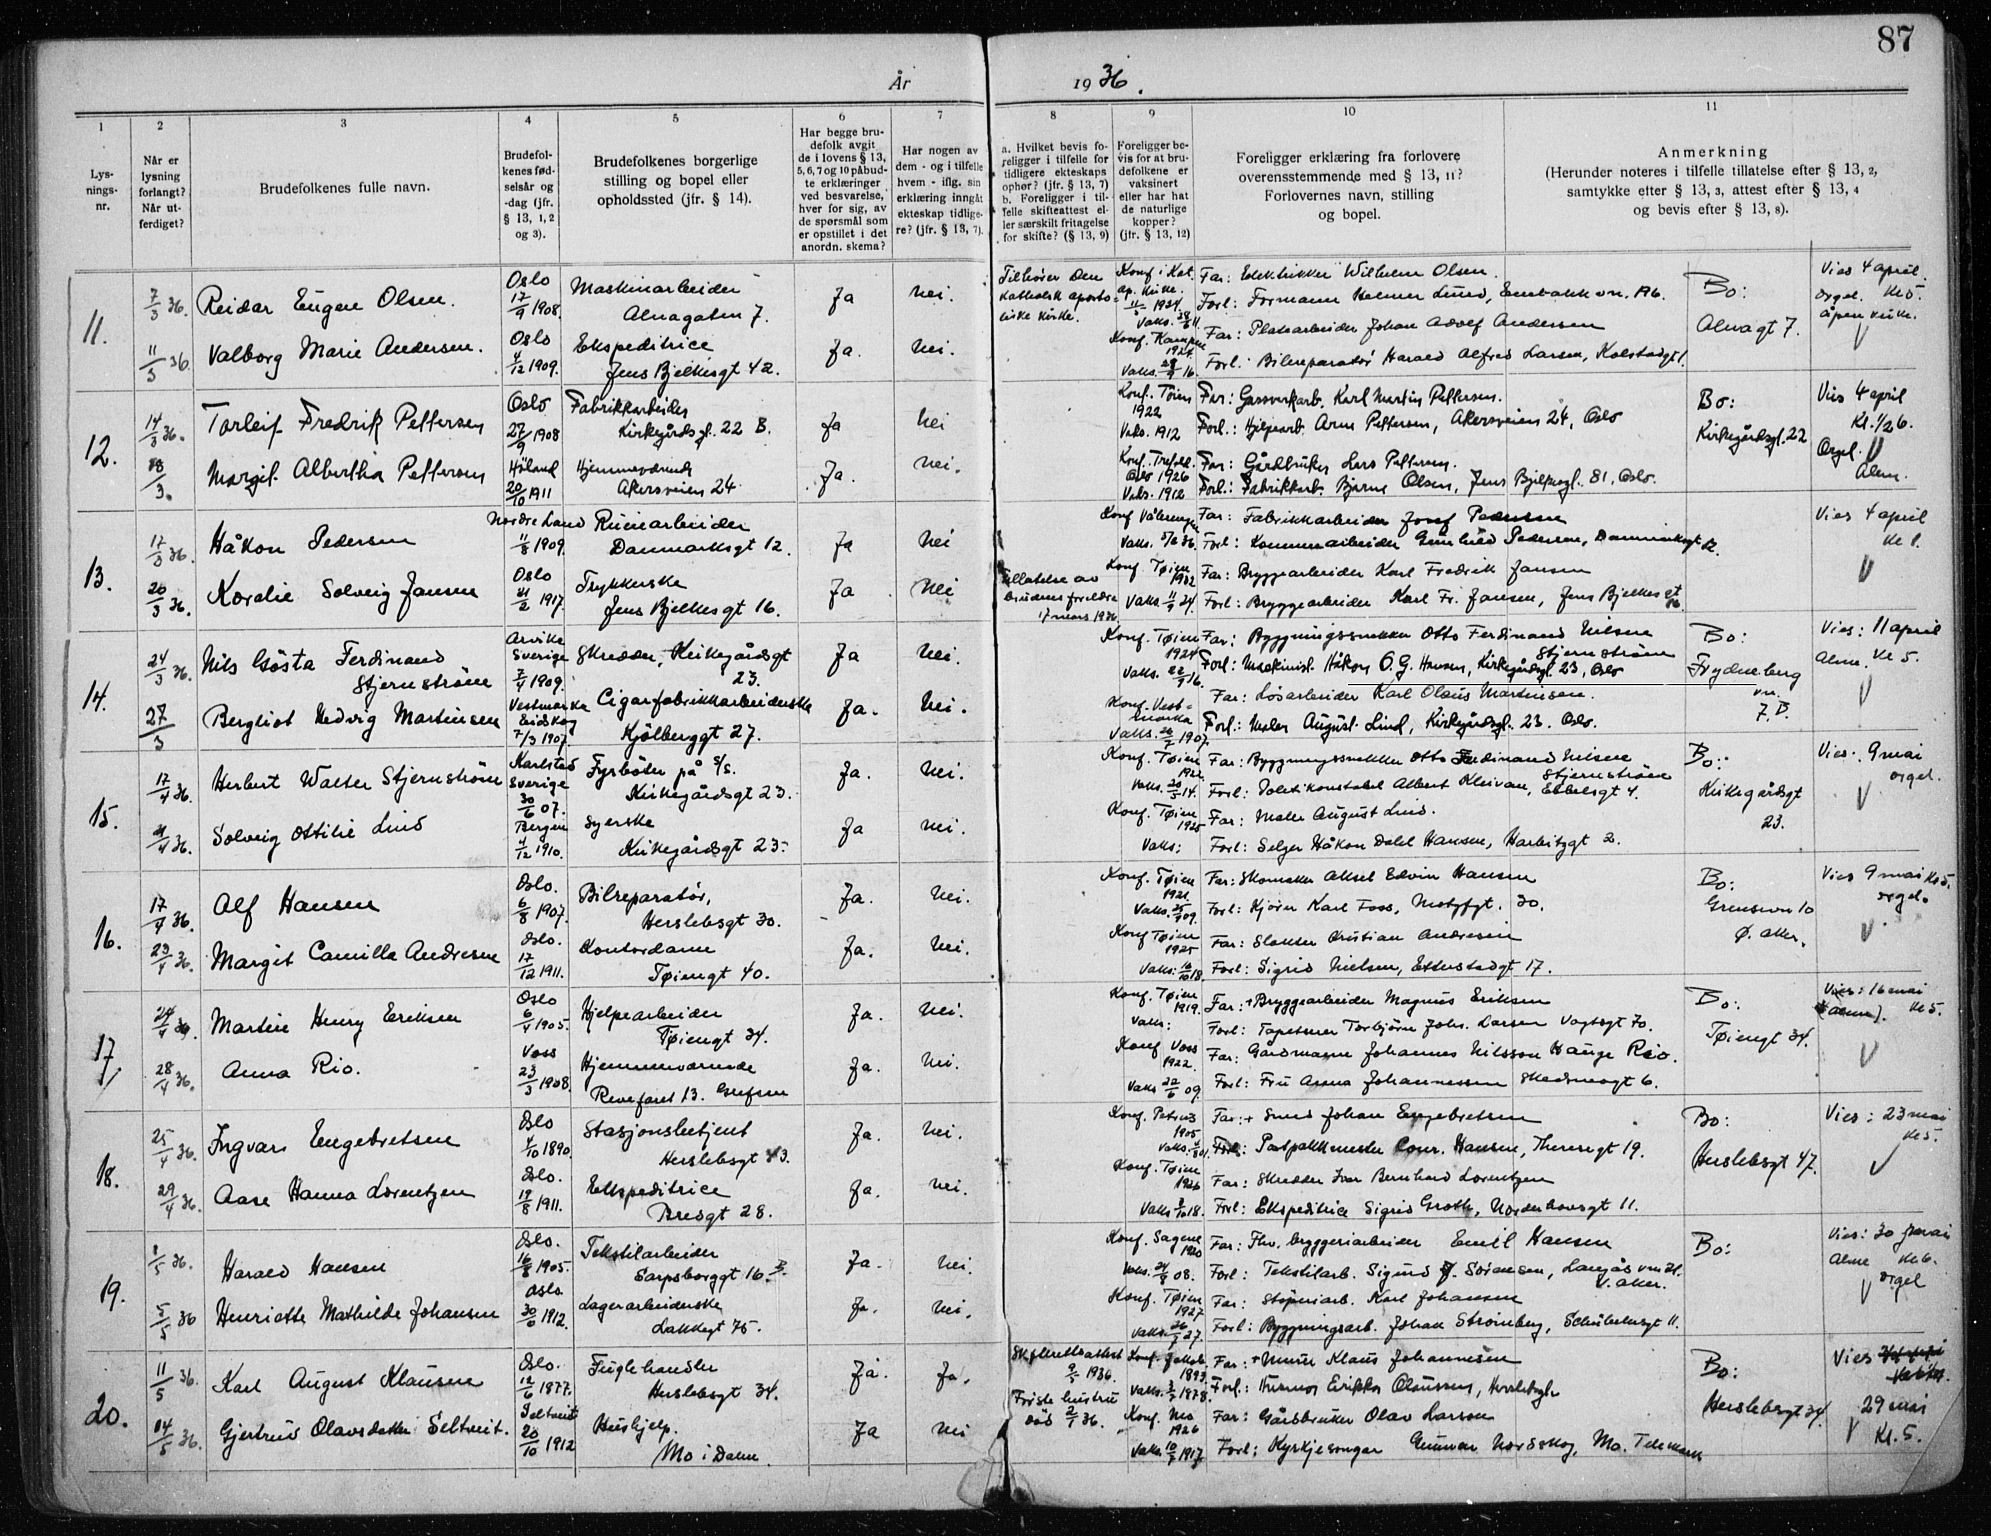 87
År 1936.
1
2
3
4
5
6
7
8
9
10
11
Lys-
nings-
nr.
Når er
lysning
forlangt?
Når ut-
ferdiget?
Brudefolkenes fulle navn.
Brudefol-
kenes fød-
selsår og
-dag (jfr.
§ 13, 1, 2
og 3).
Brudefolkenes borgerlige
stilling og bopel eller
opholdssted (jfr. § 14).
Har begge bru-
defolk avgit
de i lovens § 13,
5, 6, 7 og 10 påbud-
te erklæringer
ved besvarelse,
hver for sig, av
de spørsmål som
er opstillet i det
anordn. skema?
Har nogen av
dem - og i tilfelle
hvem - iflg. sin
erklæring inngåt
ekteskap tidlige-
re? (jfr. § 13, 7).
a. Hvilket bevis fo-
religger i tilfelle for
tidligere ekteskaps
ophør? (jfr. § 13, 7)
b. Foreligger i til-
felle skifteattest el-
ler særskilt fritagelse
for skifte? (§ 13, 9)
Foreligger be-
vis for at bru-
defolkene er
vaksinert
eller har hat
de naturlige
kopper?
(jfr. § 13, 12)
Foreligger erklæring fra forlovere
overensstemmende med § 13, 11?
Forlovernes navn, stilling
og bopel.
Anmerkning
(Herunder noteres i tilfelle tillatelse efter § 13, 2,
samtykke efter § 13, 3, attest efter § 13, 4
og bevis efter § 13, 8).
11.
7/3 36. Reidar Eugen Olsen. Oslo 17/9 1908. Maskinarbeider Almagaten 7. Ja Nei.
Tilhører Den katholsk apostoliske kirke. Konf. i Kat. ap. kirke. 1924 Far: Elektriker Wilhelm Olsen.
Forl: Formann Helmer Lund, Enebakkvn. 196.
Bo: Almagt 7. Vies 4 april. Kl 5. Orgel. åpen kirke.
11/3 36 Valborg Marie Andersen. Oslo 4/12 1909. Ekspeditrice Jens Bjelkesgt 42. Ja. Nei.
Konf. Kampen 1924 Vaks. 16. Far: Platearbeider Johan Adolf Andersen
Forl: Bilreparatør Harald Alfred Larsen, Kolstadgt 1.
12.
14/3 36. Torleif Fredrik Pettersen Oslo 27/9 1908 Fabrikkarbeider Kirkegårdsgt. 22 B. Ja Nei
Konf. Tøien 1922 Vaks. 1912 Far: Gassverkarb. Karl Martin Pettersen.
Forl.: Hjelpearb. Arne Pettersen, Akersveien 24, Oslo
Bo: Kirkegårdsgt. 22 Vies 4 april Kl. 1/2 6. Orgel. Alm.
18/3. Margit Albertha Pettersen Høland 20/10 1911 Hjemmeværende Akersveien 24. Ja. Nei.
Konf. Trefold. Oslo 1926 Vaks. 1912 Far: Gårdbruker Lars Pettersen.
Forl.: Fabrikkarb. Bjarne Olsen, Jens Bjelkesgt. 81, Oslo.
13.
17/3 36. Håkon Pedersen Nordre Land 11/8 1909. Rivearbeider Danmarksgt 12. Ja Nei
Konf Vålerengen Vaks. 36. Far: Fabrikkarbeider Josef Pedersen
Forl: Kommunearbeider Pedersen, Danmarksgt 12.
Vies 4 april Kl 1.
20/3 36. Koralie Solveig Jansen Oslo 21/2 1917. Trykkerske Jens Bjelkesgt 16. Ja Nei
Tillatelse av brudens foreldre 17 mars 1936 Konf Tøien 1932 Vaks. 24. Far: Bryggearbeider Karl Fredrik Jansen
Forl: Bryggearbeider Karl Fr. Jansen, Jens Bjelkesgt 16.
14.
24/3 36. Nils Gösta Ferdinand Stjernström Arvika Sverige 7/4 1909. Skredder, Kirkegårdsgt 23. Ja Nei.
Konf. Tøien 1924 Vaks. 16. Far: Bygningssnekker Otto Ferdinand Nilsen Stjernström
Forl: Maskinist. Håkon O. G. Hansen, Kirkegårdsgt. 23, Oslo
Bo: Frydenberg vn. 7. B. Vies: 11 april Alm. Kl 5.
27/3 Bergliot Hedvig Martinsen Vestmarka Eidskog 7/3 1907. Cigarfabrikkarbeiderske Kjølberggt 27. Ja. Nei.
Konf. Vestmarka Vaks. 1907 Far: Løsarbeider Karl Olaus Martinsen.
Forl: Maler August Lind, Kirkegårdsgt. 23. Oslo.
15.
17/4 36. Herbert Walter Stjernström Karlstad Sverige 30/6 07. Fyrbøter på s/s. Kirkegårdsgt 23. Ja. Nei.
Konf. Tøien 1922 Vaks. 14. Far: Bygningssnekker Otto Ferdinand Nilsen Stjernström
Forl: Politikonstabel Albert Kleivan, Ebbelsgt 4.
Bo: Kirkegårdsgt 23. Vies: 9 mai orgel.
21/4 36. Solveig Ottilie Lind Bergen 4/12 1910. Syerske Kirkegårdsgt 23. Ja Nei.
Konf. Tøien 1925 Vaks: Far: Maler August Lind.
Forl: Selger Håkon Dahl Hansen, Harbitzgt 2.
16.
17/4 36. Alf Hansen Oslo. 6/8 1907. Bilreparatør, Herslebsgt 30. Ja. Nei.
Konf. Tøien 1921. Vaks. 09. Far: Skomaker Aksel Edvin Hansen
Forl: Kjører Karl Foss, Motzfgt. 30.
Bo: Grensevn 10 Ø. Aker. Vies 9 mai Kl 5. orgel.
23/4 36. Margit Camilla Andresen Oslo. 17/12 1911. Kontordame Tøiengt 40. Ja. Nei.
Konf Tøien 1925 Vaks: 16/10 18. Far: Slakter Kristian Andresen
Forl: Sigrid Nielsen, Etterstadgt 17.
17
24/4 36. Martin Henry Eriksen Oslo 6/4 1905. Hjelpearbeider Tøiengt 34. Ja. Nei.
Konf. Tøien 1919. Vaks: Far: + Bryggearbeider Magnus Eriksen
Forl: Tapetserer Torbjørn Johs. Larsen Vogtsgt 70.
Bo: Tøiengt 34. Vies: 16 mai Kl 5. (alene).
28/4 36. Anna Rio. Voss 23/3 1908. Hjemmeværende Revefaret 13. Grefsen Ja. Nei.
Konf Voss 1922. Vaks 22/6 09. Far: Gårdmann Johannes Nilsson Hauge Rio.
Forl: Fru Anna Johannessen Skedsmogt 6.
18.
25/4 36. Ingvar Engebretsen Oslo 4/10 1890. Stasjonsbetjent Herslebsgt 43. Ja. Nei.
Konf. Petrus 1905 Far: + Smed Johan Engebretsen
Forl: Postpakkmester Conr. Hansen, Theresegt 19.
Bo: Herslebsgt 47. Vies: 23 mai Kl 5.
29/4 36. Aase Hanna Lorentzen Oslo. 19/8 1911. Ekspeditrice Bredgt 28. Ja. Nei.
Konf. Tøien 1926 Vaks 18. Far: Skredder Ivar Bernhard Lorentzen
Forl: Ekspeditrice Sigrid Groth, Norderhovsgt 11.
19.
1/5 36. Harald Hansen Oslo. 16/8 1905. Tekstilarbeider Sarpsborggt 16. B. Ja. Nei.
Konf. Sagene 1920 Vaks. 08. Far: Fhv. bryggeriarbeider Emil Hansen
Forl: Tekstilarb. Sigurd J. Sørensen, Langåsvn 21. V. Aker.
Bo: Vies: 30 mai Kl 6. Alene orgel
5/5 36 Henriette Mathilde Johansen Oslo 30/ 1912. Lagerarbeiderske Lakkegt 75. Ja. Nei.
Konf. Tøien 1927 Vaks. 27. Far: Støperiarb. Karl Johansen
Forl: Bygningsarb. Johan Strømberg, Schübelersgt 11.
20.
11/5 36. Karl August Klausen Oslo. 12/6 1877. Fuglehandler Herslebsgt 34. Ja. Ja.
Skifterettsattest 9/5 1936. Første hustru død 2/1 36. Konf. Jakob 1893 Vaks. 1878. Far: + Murer Klaus Johannesen
Forl.: Erikka Olaussen, Herslebsgt
Bo: Herslebsgt 34. Vies 29 mai Kl. 5.
14/5 36. Gjertrud Olavsdatter Seltveit. Seltveit 20/10 1912 Hushjelp. Mo i Dalen. Ja Nei
Konf. Mo 1926 Vaks. 1917 Far: Gårdbruker Olav Larson
Forl: Kyrkjesongar Gunnar Nordskog, Mo. Telemark